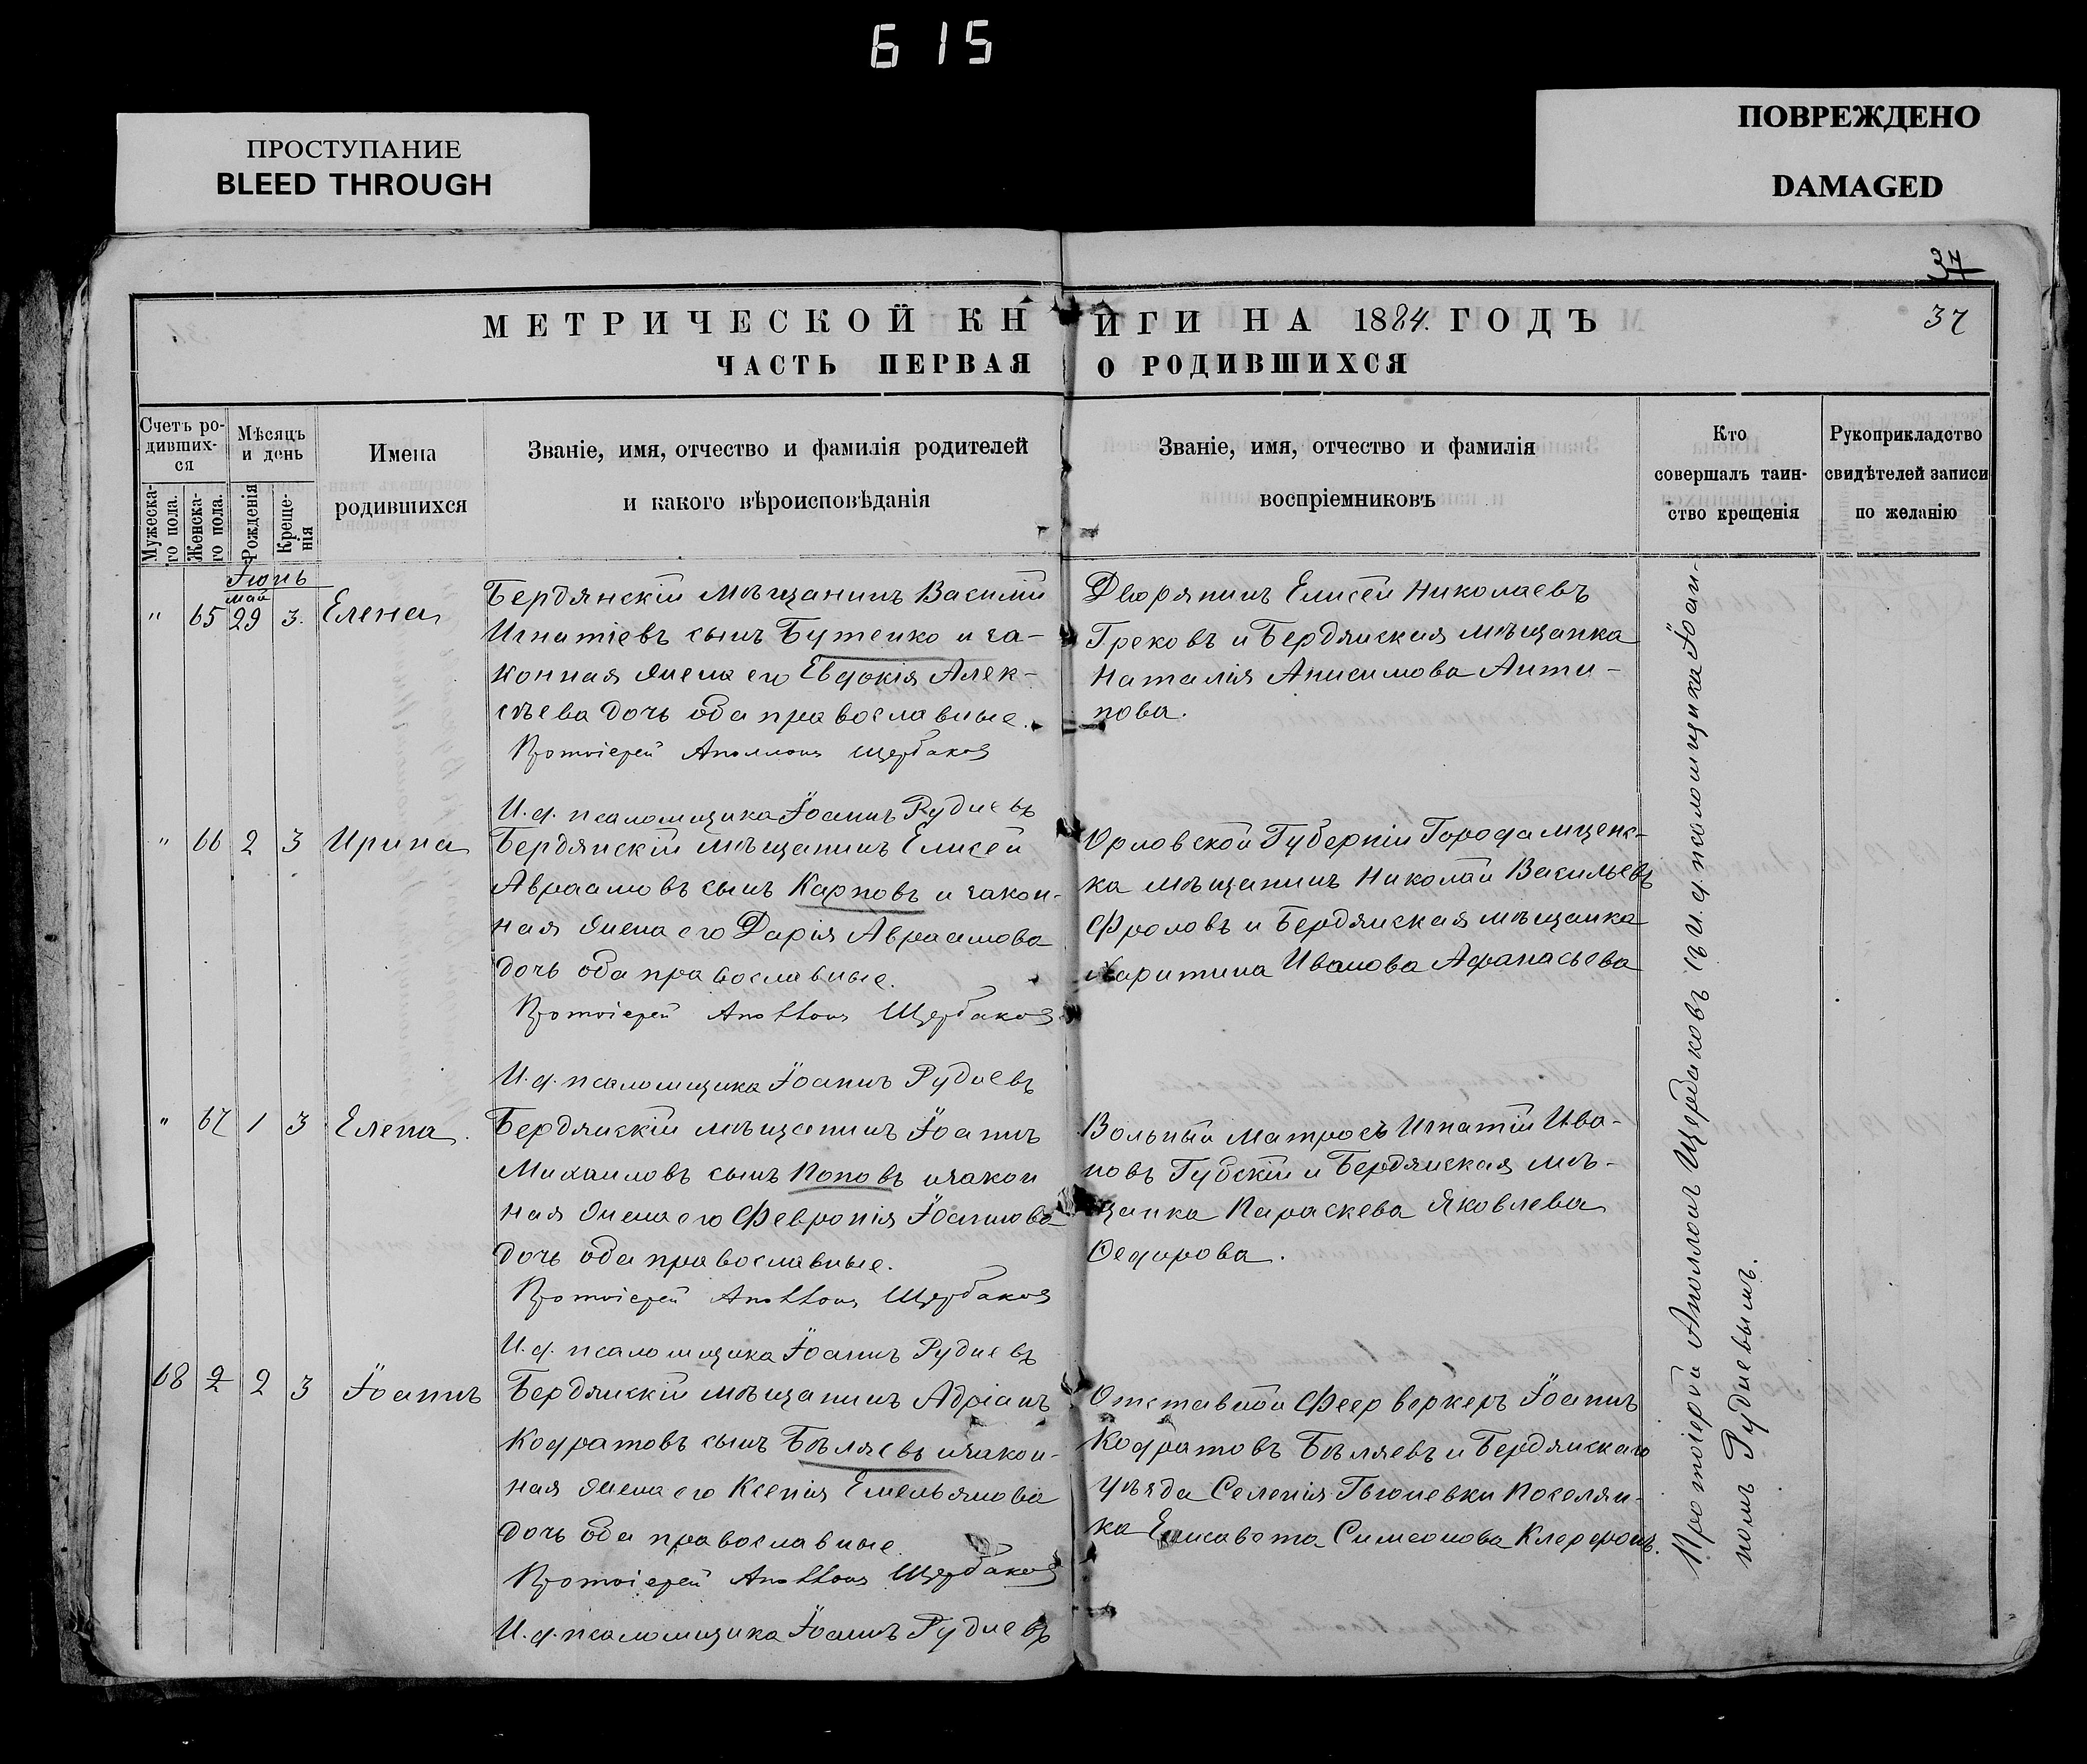 615
ПРОСТУПАНИЕ
BLEED THROUGH
ПОВРЕЖДЕНО
DAMAGED
37
37
МЕТРИЧЕСКОЙ КНИГИ НА 1884. ГОДЪ
ЧАСТЬ ПЕРВАЯ О РОДИВШИХСЯ
Счетъ ро-
дивших-
ся
Мужеска-
го пола.
Женска-
го пола.
Мѣсяцъ
и день
Рожденія
Креще-
нія
Имена
родившихся
Званіе, имя, отчество и фамилія родителей
и какого вѣроисповѣданія
Званіе, имя, отчество и фамилія
воспріемниковъ
Кто
совершалъ таин-
ство крещенія
Рукоприкладство
свидѣтелей записи
по желанію
Іюнь
май
" 65 29 3. Елена
Бердянскій мѣщанинъ Василій
Игнатіевъ сынъ Бутенко и за-
конная жена его Евдокія Алек-
сѣева дочь оба православные.
Протоіерей Аполлонъ Щербаковъ
И.д. псаломщика Іоаннъ Рудневъ
Дворянинъ Елисей Николаевъ
Грековъ и Бердянская мѣщанка
Наталія Анисимова Анти-
пова.
" 66 2 3 Ирина
Бердянскій мѣщанинъ Елисей
Авраамовъ сынъ Карповъ и закон-
ная жена его Дарія Авраамова
дочь оба православные.
Протоіерей Аполлонъ Щербаковъ
И.д. псаломщика Іоаннъ Рудневъ
Орловской Губерніи Города Мценс-
ка мѣщанинъ Николай Васильевъ
Фроловъ и Бердянская мѣщанка
Харитина Иванова Афанасьева
" 67 1 3 Елена.
Бердянскій мѣщанинъ Іоаннъ
Михаиловъ сынъ Поповъ и закон
ная жена его Февронія Іоаннова
дочь оба православные.
Протоіерей Аполлонъ Щербаковъ
И.д. псаломщика Іоаннъ Рудневъ
Вольный матросъ Игнатій Ива-
новъ Губскій и Бердянская мѣ-
щанка Параскева Яковлева
Ѳедорова.
68 2 2 3 Іоаннъ
Бердянскій мѣщанинъ Адріанъ
Кодратовъ сынъ Бѣляевъ и закон-
ная жена его Ксенія Емельянова
дочь оба православные.
Протоіерей Аполлонъ Щербаковъ
И.д. псаломщика Іоаннъ Рудневъ
Отставной Фейерверкеръ Іоаннъ
Кодратовъ Бѣляевъ и Бердянскаго
Уѣзда Селенія Гьюневки Поселян-
ка Елисавета Симеонова
Протоіерей Аполлонъ Щербаковъ съ и.д. псаломщика Іоан-
номъ Рудневымъ.